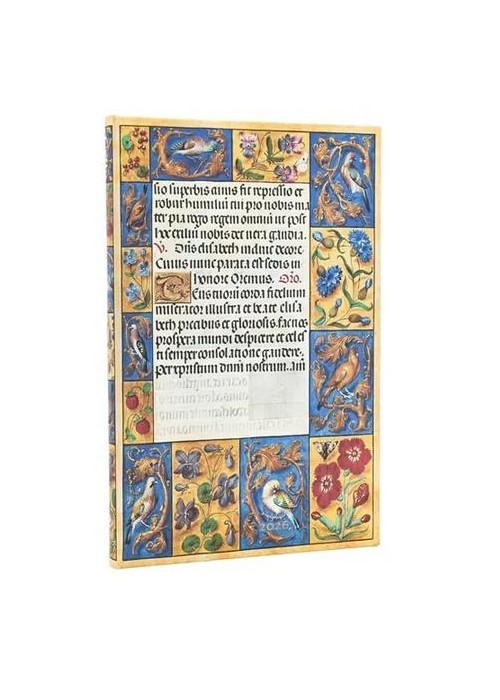 sio superbis cuius fit repressio et
robur humiliū cui pro nobis ma
ter pia rogo regem omniū ut post
hoc exiliū nobis det vera gaudia.
V. Diffusa
elisabeth in diuie decore.
Cuius nunc parata est sedis in
honore Oremus. Oro.
Eus tuorū corda fidelium
miserator illustra et beate elisa
beth precibus et gloriosis fac nos
prospera mundi despicere et celes
ti semper consolatione gaudere.
per xpristum dnm nostrum. am
2026